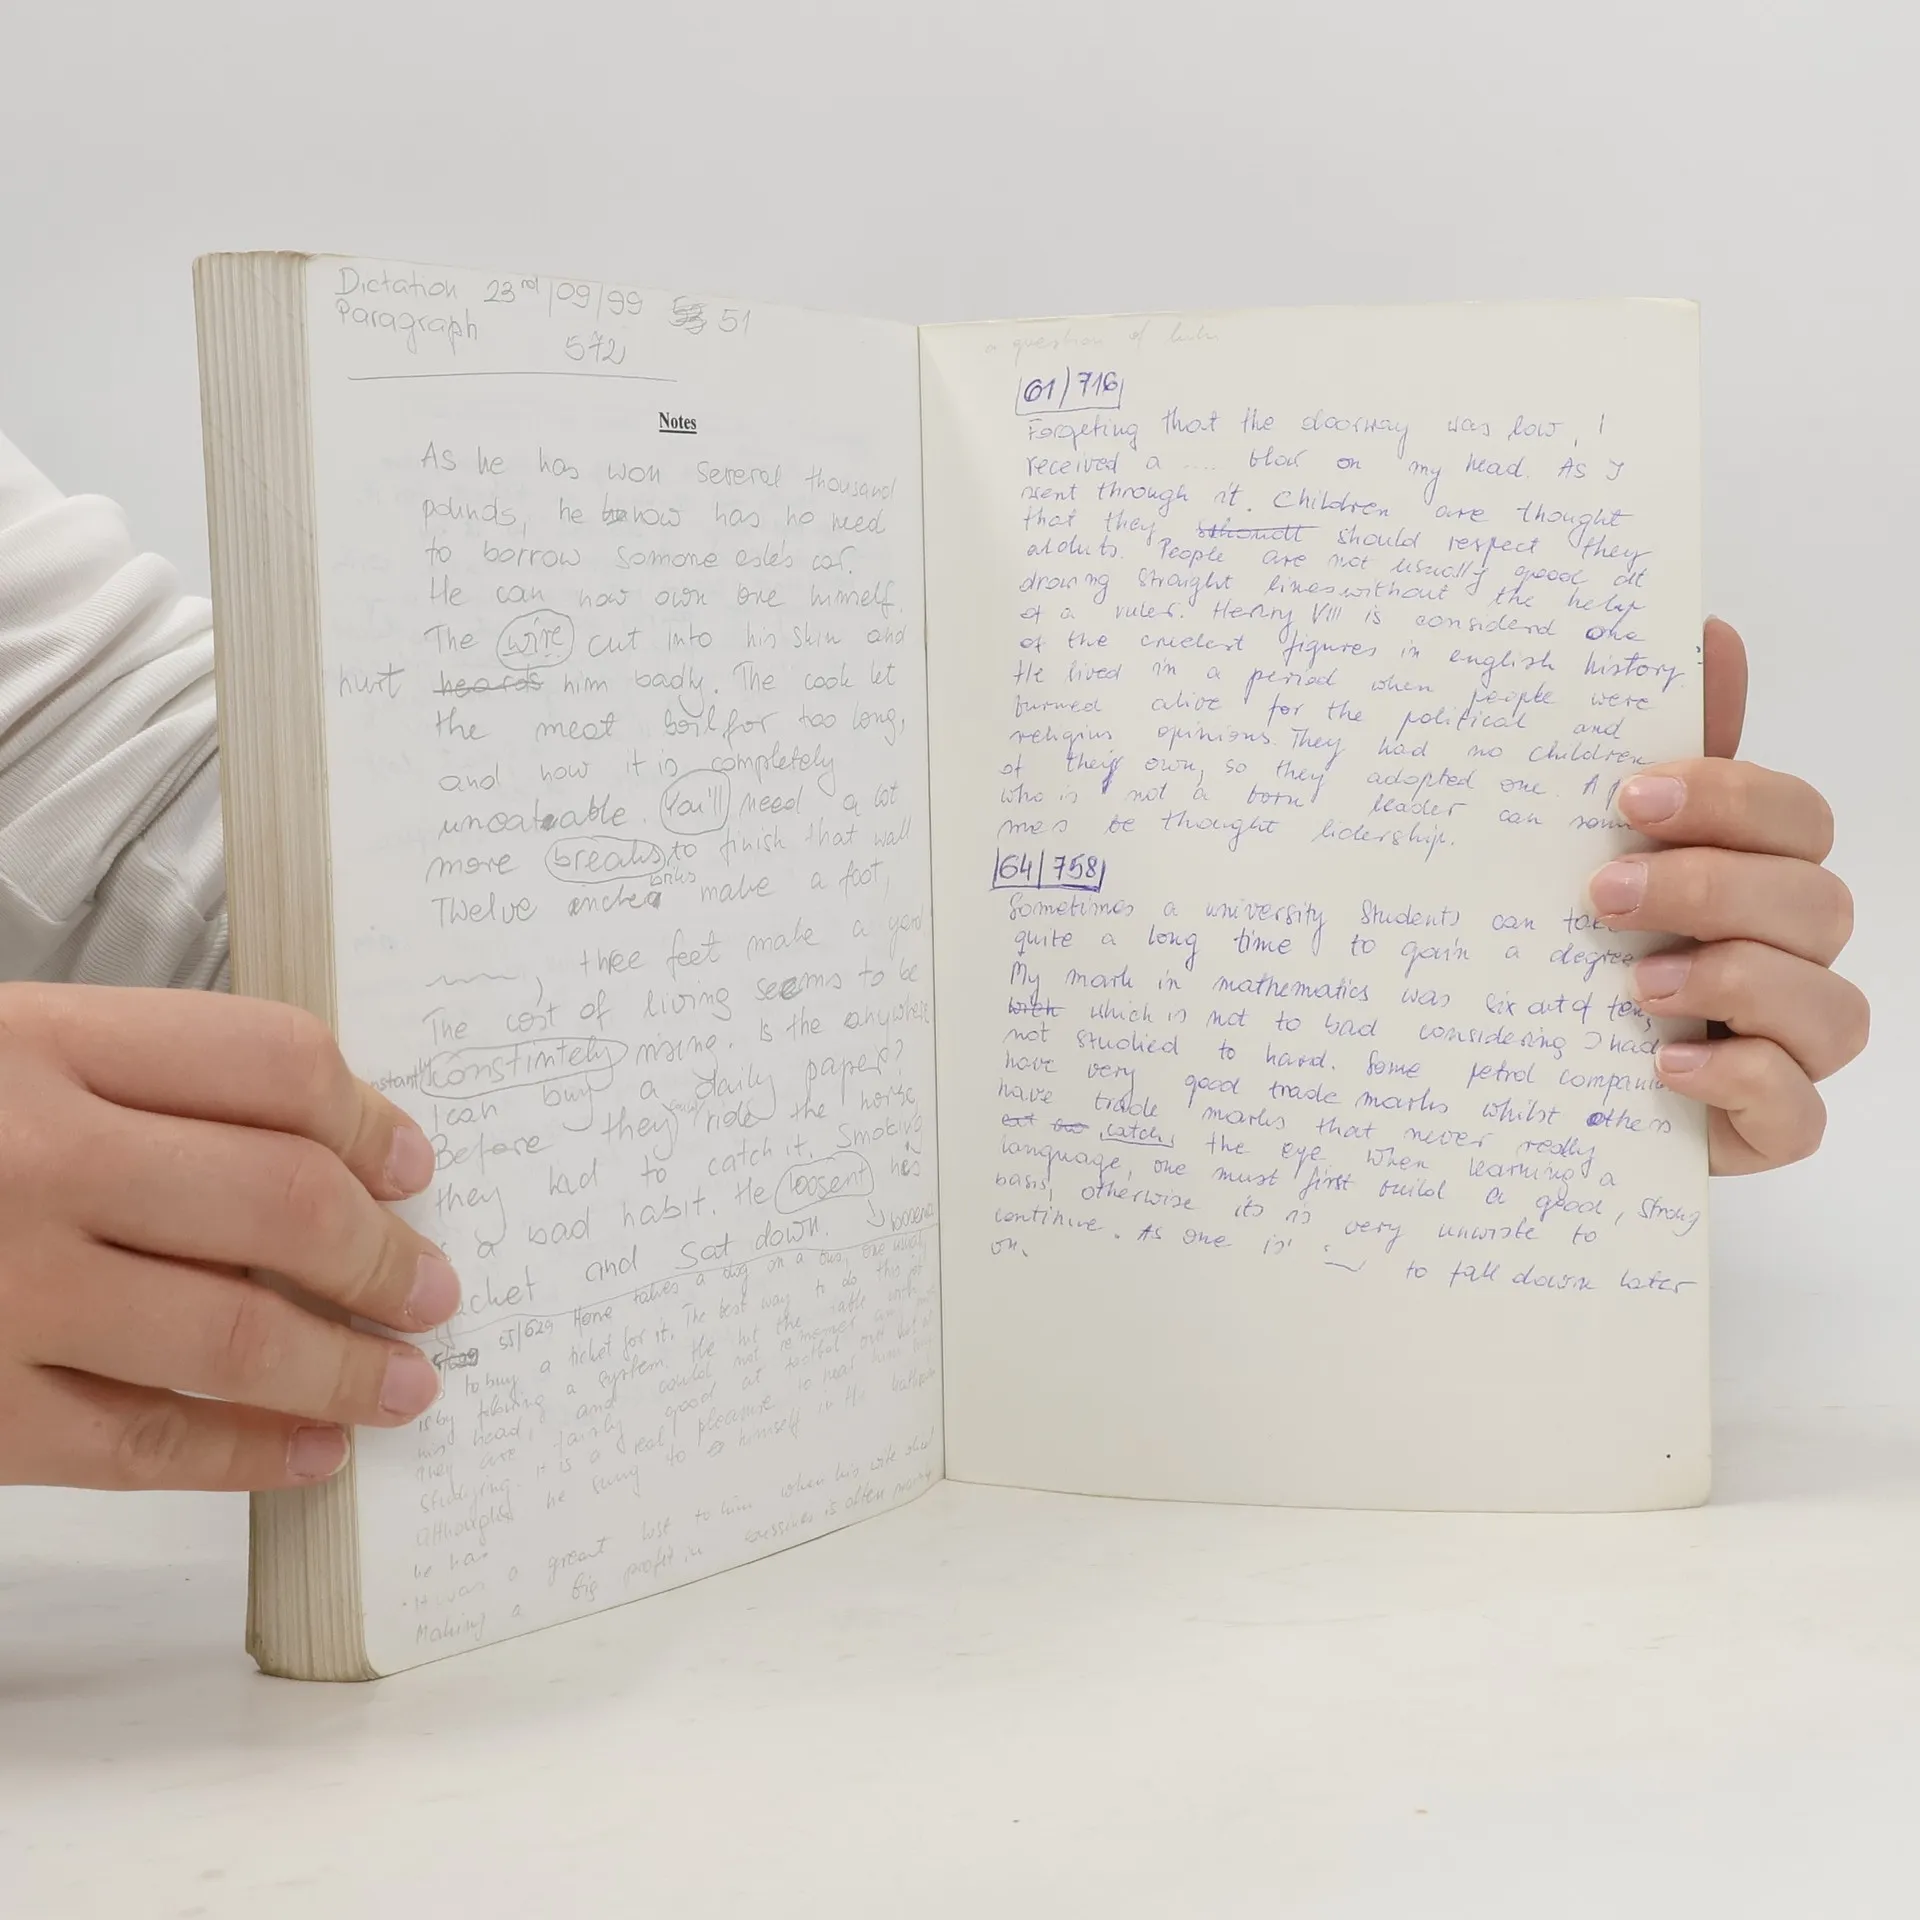 Dictation 23rd/09/99 51
Paragraph 572
Notes
As he has won several thousand
pounds, he now has no need
to borrow somone esle's car.
He can now own one himself.
The wire cut into his skin and
hurt heards him badly. The cook let
the meat boil for too long,
and now it is completely
uneatable. You'll need a lot
more breaks to finish that wall
briks
Twelve inches make a foot,
, thee feet make a yard
The cost of living seems to be
constintely rising. Is the anywhere
I can buy a daily paper?
Before they could ride the horse
they had to catch it. Smoking
is a bad habit. He loosent his
jacket and sat down. loosened
55/629 Home takes a dog on a bus, one must
to buy a ticket for it. The best way to do this
is by following a system. He hit the table with
his head, and could not remember
they are fairly good at football
studying. It is a real pleasure to hear him
although he sung to himself in the bathroom
he has
It was a great lost to him when his wife died
Making a big profit in bussines is often
a question of
61/716
Forgeting that the doorway was low, I
received a .... blow on my head. As I
went through it. Children are thought
that they should respect they
alduts. People are not usually goood at
drowing straight lines without the help
of a ruler. Henry VIII is considerd one
of the cruelest figures in english history.
He lived in a period when people were
burned alive for the political and
religius opinions. They had no children
of their own, so they adopted one. A
who is not a born leader can som
mes be thought lidership.
64/758
Sometimes a university students can take
quite a long time to gain a degree
My mark in mathematics was six out of ten,
wich which is not to bad considering I had
not studied to hard. Some petrol compani
have very good trade marks whilst others
have trade marks that never really
catch the eye when learning a
language, one must first build a good, strong
basis, otherwise its is very unwiste to
continue. As one is to fall down later
on.